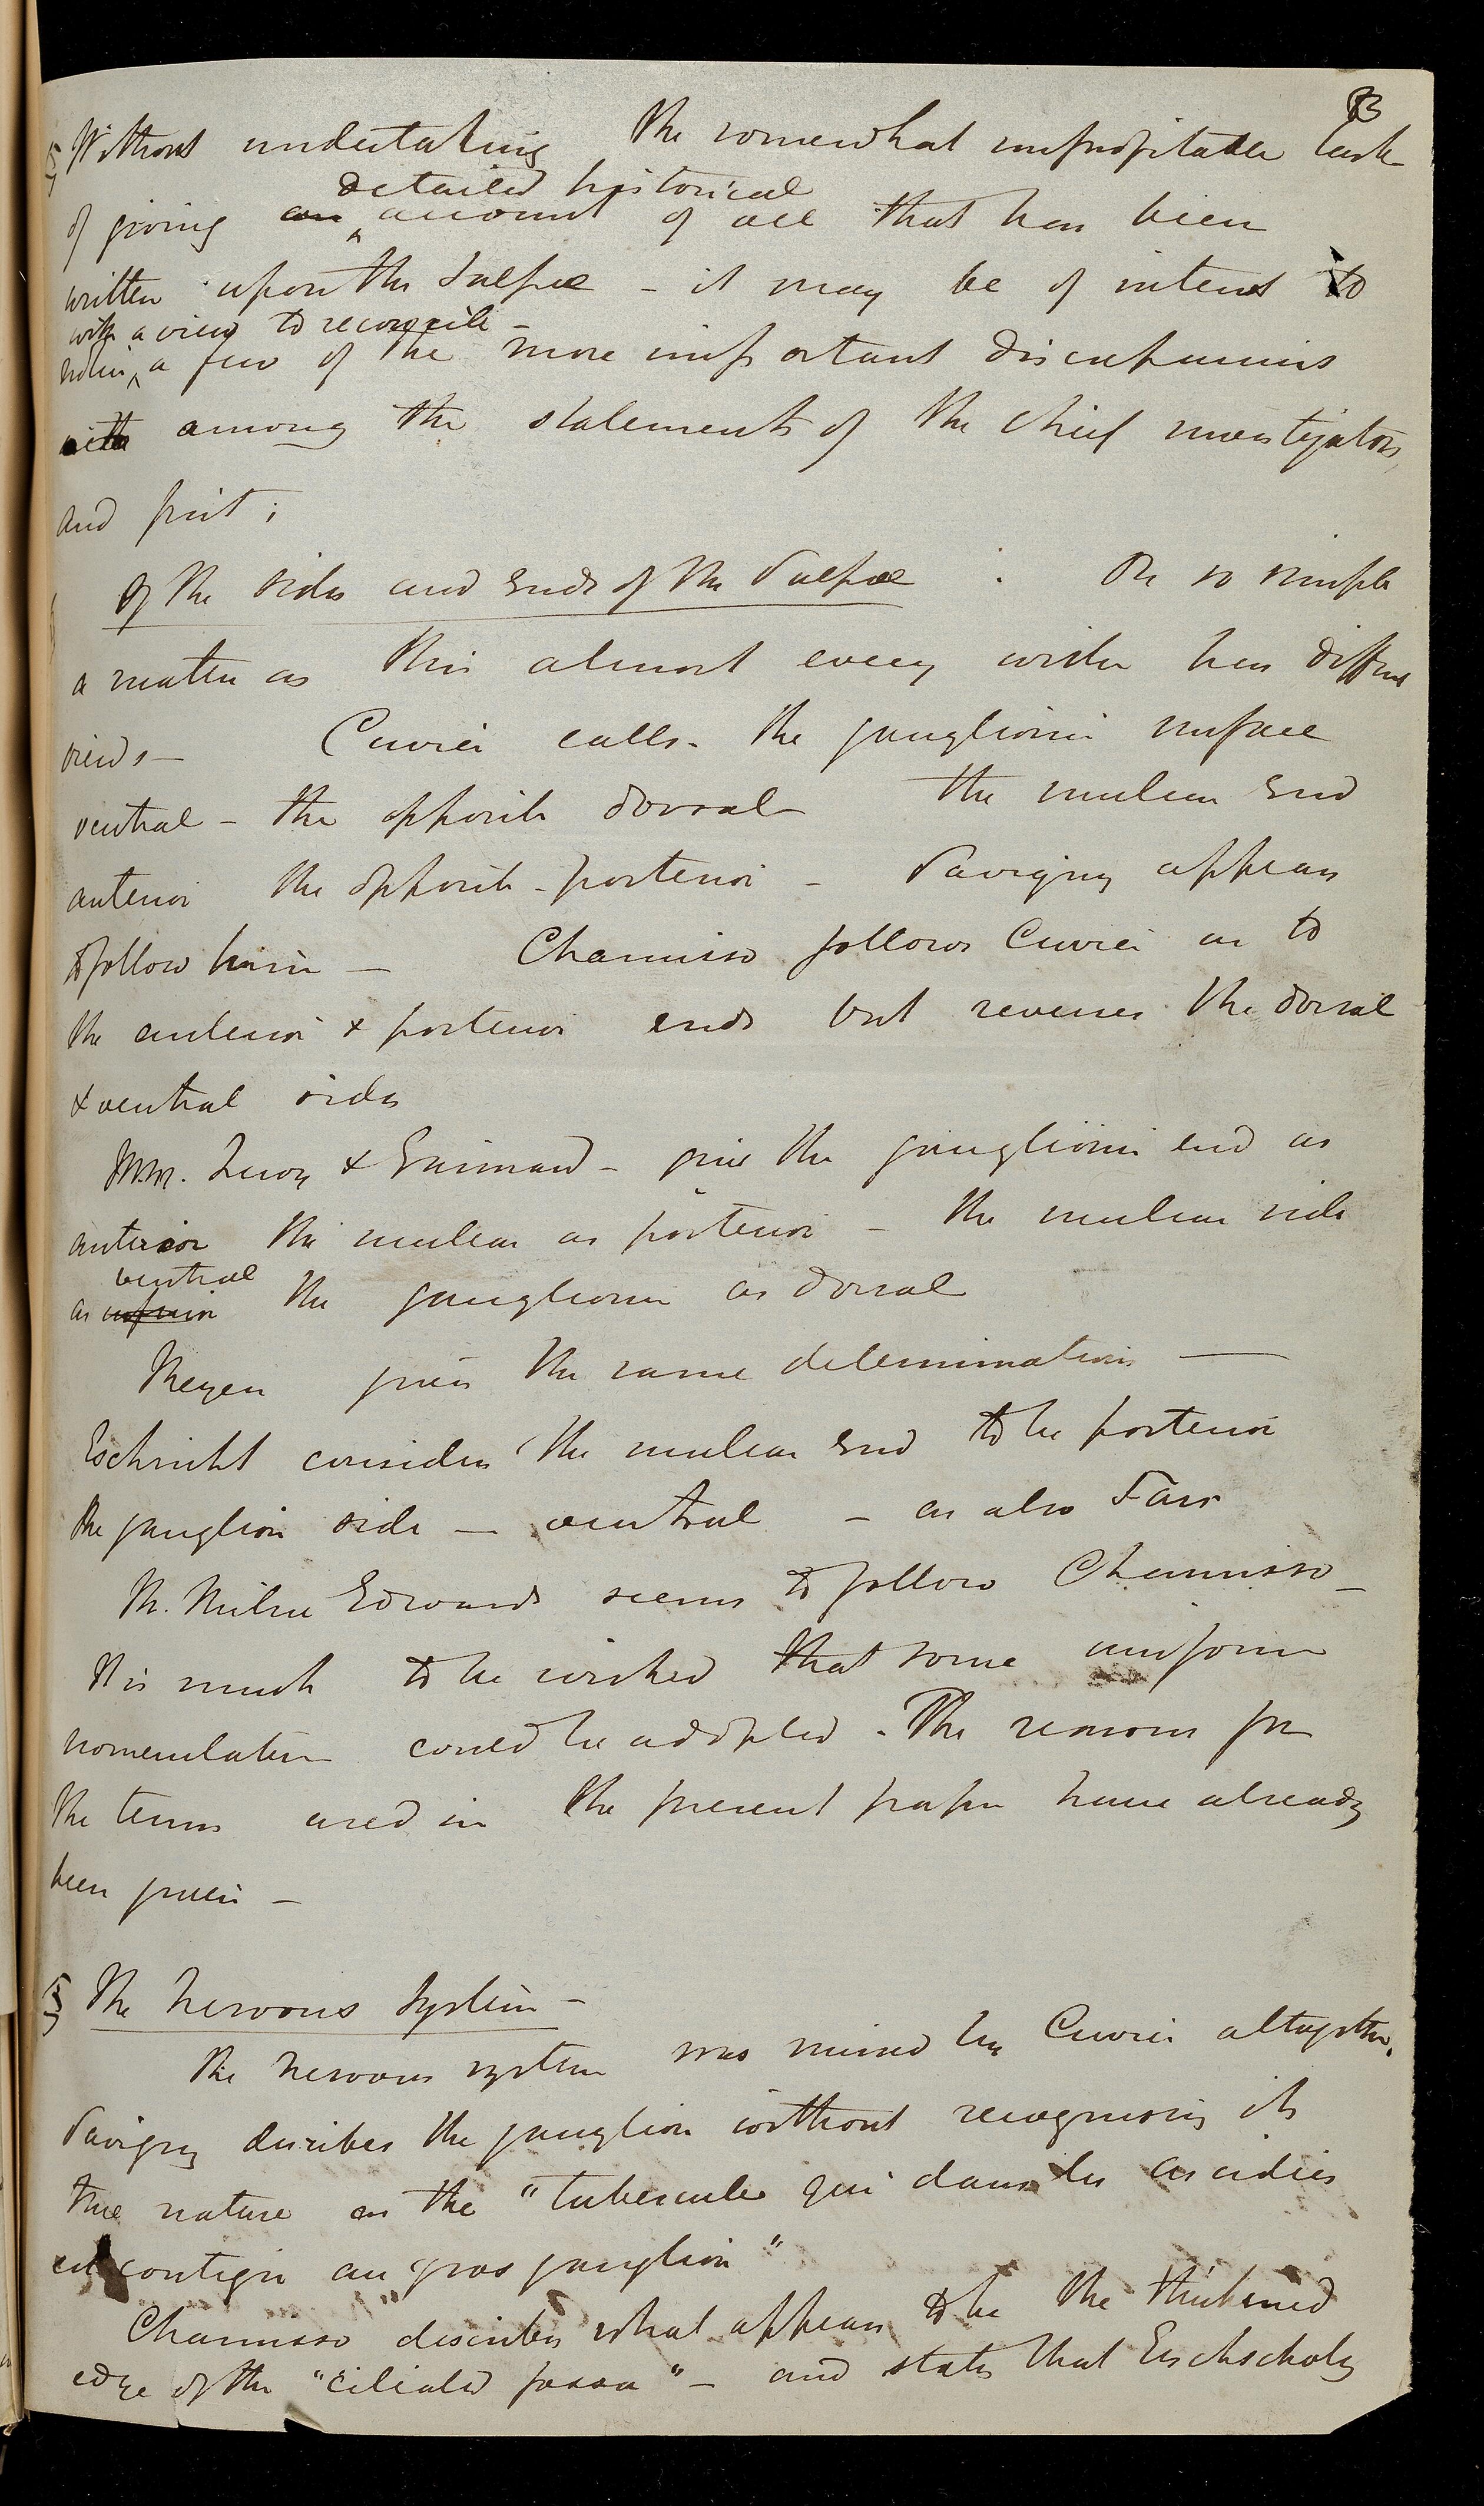 Without undertaking the somewhat unprofitable task
detailed historical
of giving an account of all that has been
written upon the Salpæ - it may be of interest to
with a view to reconcile -
notice a few of the more important discrepancies
with among the statements of the chief investigators,
and first;
Of the sides and Ends of the Salpæ . On so simple
a matter as this almost every writer has different
views - Cuvier calls the ganglionic surface
ventral - the opposite dorsal the nuclear End
anterior the opposite - posterior - Savigny appears
to follow him - Chamisso follows Cuvier as to
the anterior & posterior ends but reverses the dorsal
& ventral sides
M.M. Quoy & Gaimard - give the ganglionic end as
anterior the nuclear as posterior - the nuclear side
ventral
as the ganglionic as dorsal
Meyen gives the same determinations -
Eschricht considers the nuclear End to be posterior
the ganglion side - ventral - as also Sars
M. Milne Edwards seems to follow Chamisso -
It is much to be wished that some uniform
nomenclature could be adopted. The reasons for
the terms used in the present paper have already
been given -
§ The Nervous System -
The Nervous system was missed by Cuvier altogether.
Savigny describes the ganglion without recognising its
true nature as the "tubercule qui dans les ascidies
est contigu au gros ganglion"
Chamisso describes what appears to be the thickened
edge of the "ciliated fossa" - and states that Eschscholtz